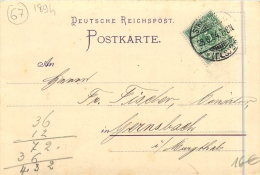 67
1894
DEUTSCHE REICHSPOST.
POSTKARTE.
An
Herrn
Fr. Fischer,
in Gernsbach
i/ Murgthal
36
12
72.
36
4.32
16€